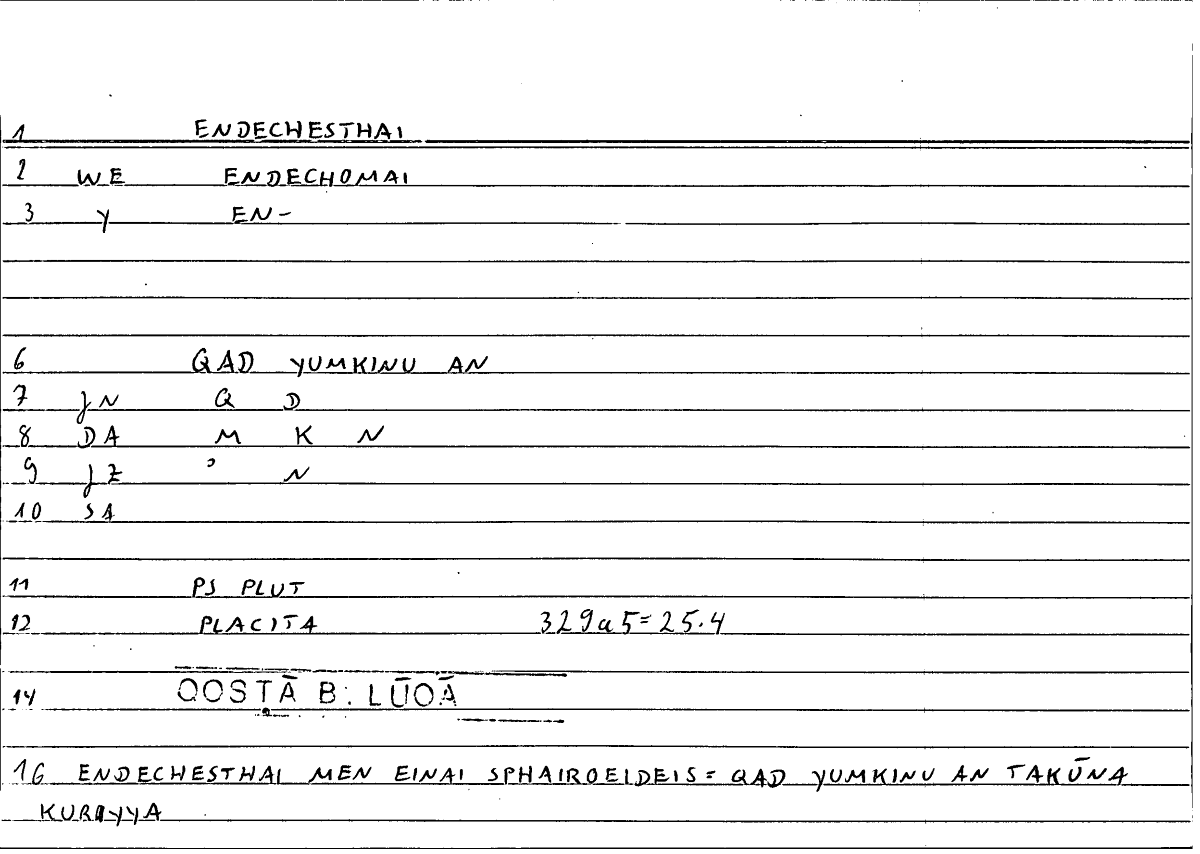 1 ENDECHESTHAI
2 WE ENDECHOMAI
3 Y EN-
6 QAD YUMKINU AN
7 JN Q D
8 DA M K N
9 JZ ' N
10 SA
11 PS PLUT
12 PLACITA 329a5=25.4
14 QOSṬĀ B. LŪQĀ
16 ENDECHESTHAI MEN EINAI SPHAIROEIDEIS = QAD YUMKINU AN TAKŪNA
KURIYYA